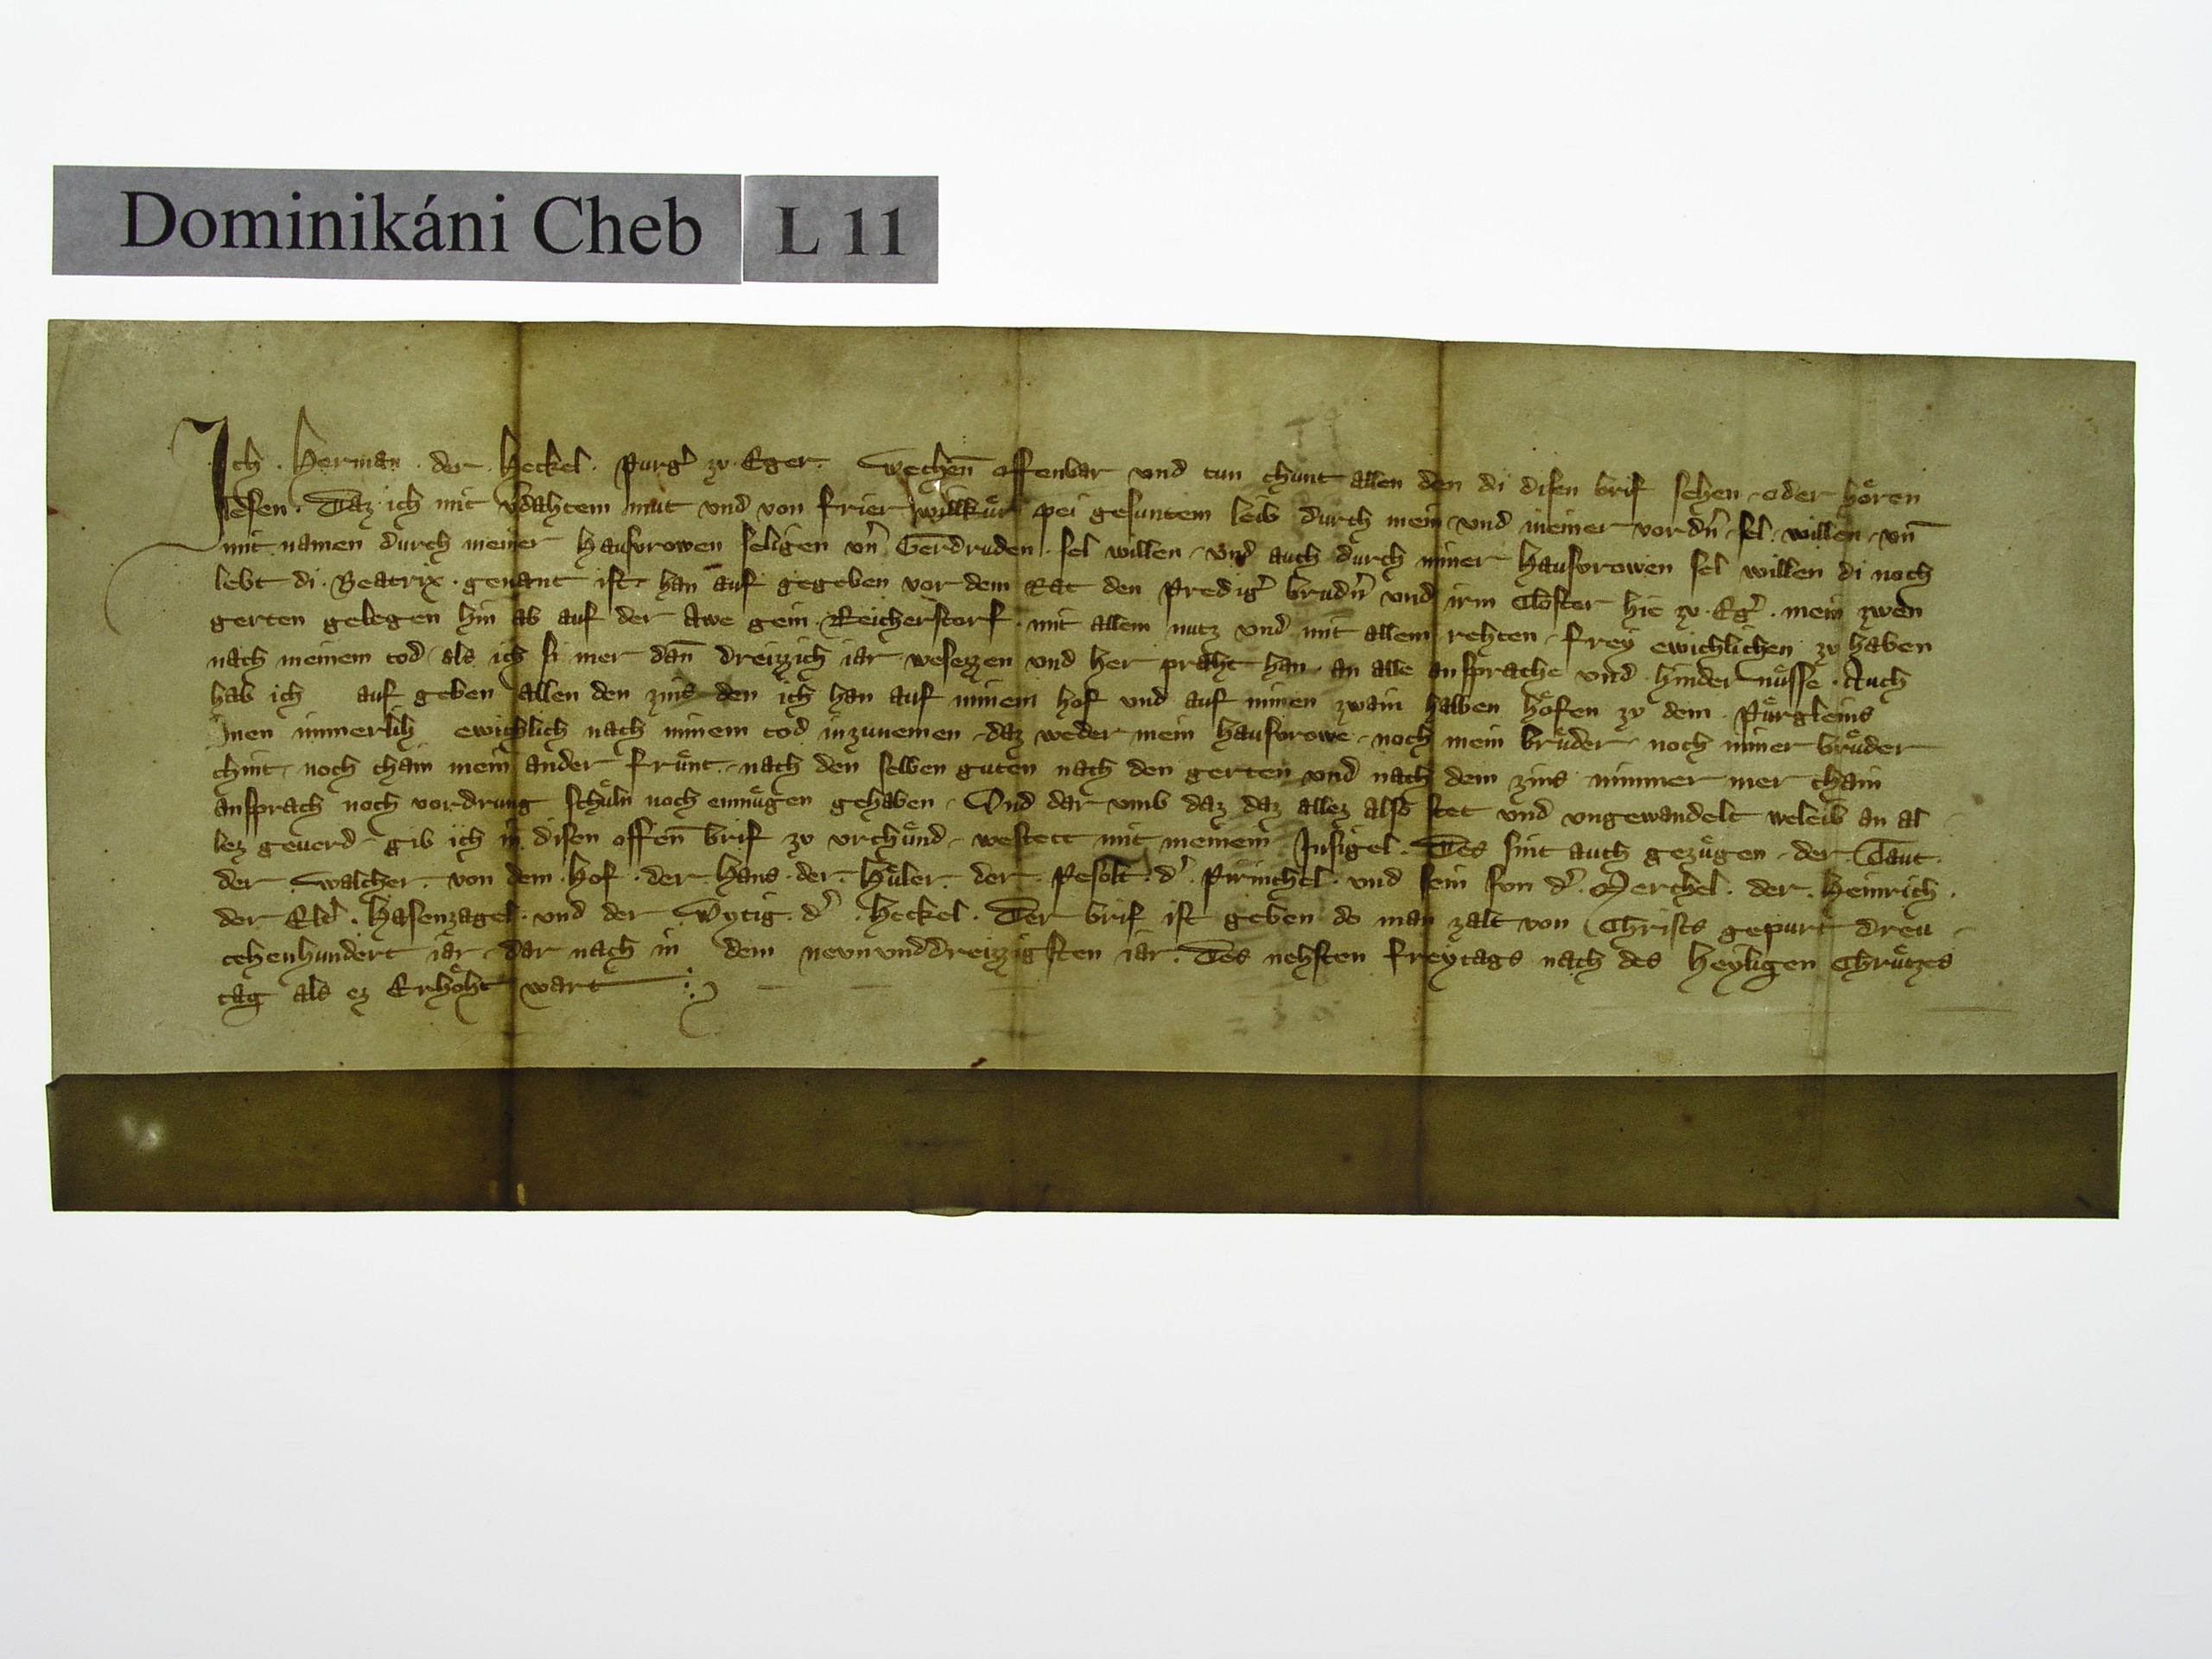 Dominikáni Cheb L 11
Ich . Herman . der . Heckel . purg͛ zv . Eger . Wechen̄ offenbar vnd tun chunt allen den di disen brif sehen oder hoͤren
lesen . Daz ich mit v͛dahtem mut vnd von frier willkuͤr pei gesuntem leib durch mein vnd meiner vordn͛ . sel . willen . vn̄
mit namen durch meiner hausvrowen seligen vn̄ Gerdruden . sel willen . vnd auch durch miner hausvrowen sel willen di noch
lebt di . Beatrix . genant ist han auf gegeben vor dem Rat den predig͛ brudn͛ vnd irm Closter hie zv . Eg͛ . mein zwen
gerten gelegen hin ab auf der Awe gein . Reicherstorf . mit allem nutz vnd mit allem rehten . frey ewichlichen zv haben
nach meinem tod . als ich si mer dan̄ dreizzich iar wesezzen vnd her praht han an alle ansprache vnd hindernuͤsse . Auch
hab ich auf geben allen den zins den ich han auf minem hof vnd auf minen zwain halben hoͤfen zv dem . Puͤrgleins
Inen immerlih ewichlich nach minem tod inzunemen . daz weder mein hausvrowe . noch mein bruͤder . noch miner bruͤder
chint . noch chain mein ander fruͤnt . nach den selben guten nach den gerten vnd nach dem zins nimmer mer chain
ansprach noch vordrung schuͤln noch enmuͤgen gehaben . Vnd dar vmb daz daz allez also stet vnd vngewandelt weleib an al
lez geuerd . gib ich in disen offen̄ brif zv vrchuͤnd . westett mit meinem Insigel . Des sint auch gezuͤgen . der . Taut .
der . Walcher . von dem . hof . der . Hans . der . Huͤler . der . Pesolt . d͛ . Pirinchel . vnd sein sun d͛ . Merchel . der . Heinrich .
der Eld͛ . Hasenzagel . vnd der . Wytig . d͛ . Heckel . Der brif ist geben do man zalt von Christs gepurt dreu
tzehenhundert iar . dar nach in dem nevnvnddreizzigsten iar . Des nehsten freytags nach des heyligen Chruͤtzes
tag als ez Erhoͤht wart